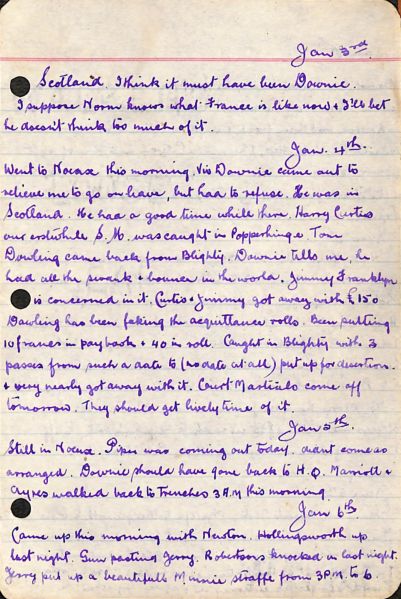 Jan 3rd.
Scotland I think it must have been Downie.
I suppose Norm knows what France is like now & I'll bet
he doesn't think too much of it.
Jan. 4th.
Went to Noeux this morning. Vis Downie came out to
relieve me to go on leave, but had to refuse. He was in
Scotland. He had a good time while there. Harry Curtis
our erstwhile S.M. was caught in Popperhinge Tom
Dowling came back from Blighty. Downie tells me, he
had all the swank & bounce in the world. Jimmy Franklyn
is concerned in it. Curtis & Jimmy got away with £150
Dowling has been faking the acquittance rolls. Been putting
10 francs in paybook & 40 in roll. Caught in Blighty with 3
passes from such a date to (no date at all) put up for desertion.
& very nearly got away with it. Court Martials come off
tomorrow. They should get lively time of it.
Jan 5th.
Still in Noeux. Piper was coming out today. didnt come as
arranged. Downie should have gone back to H.Q. Marriott &
Ayres walked back to trenches 3 A.M this morning
Jan 6th.
Came up this morning with Newton. Hollingsworth up
last night. Gun pasting Jerry. Robertsons knocked in last night.
Jerry put up a beautifull Minnie straffe from 3 P.M. to 6.